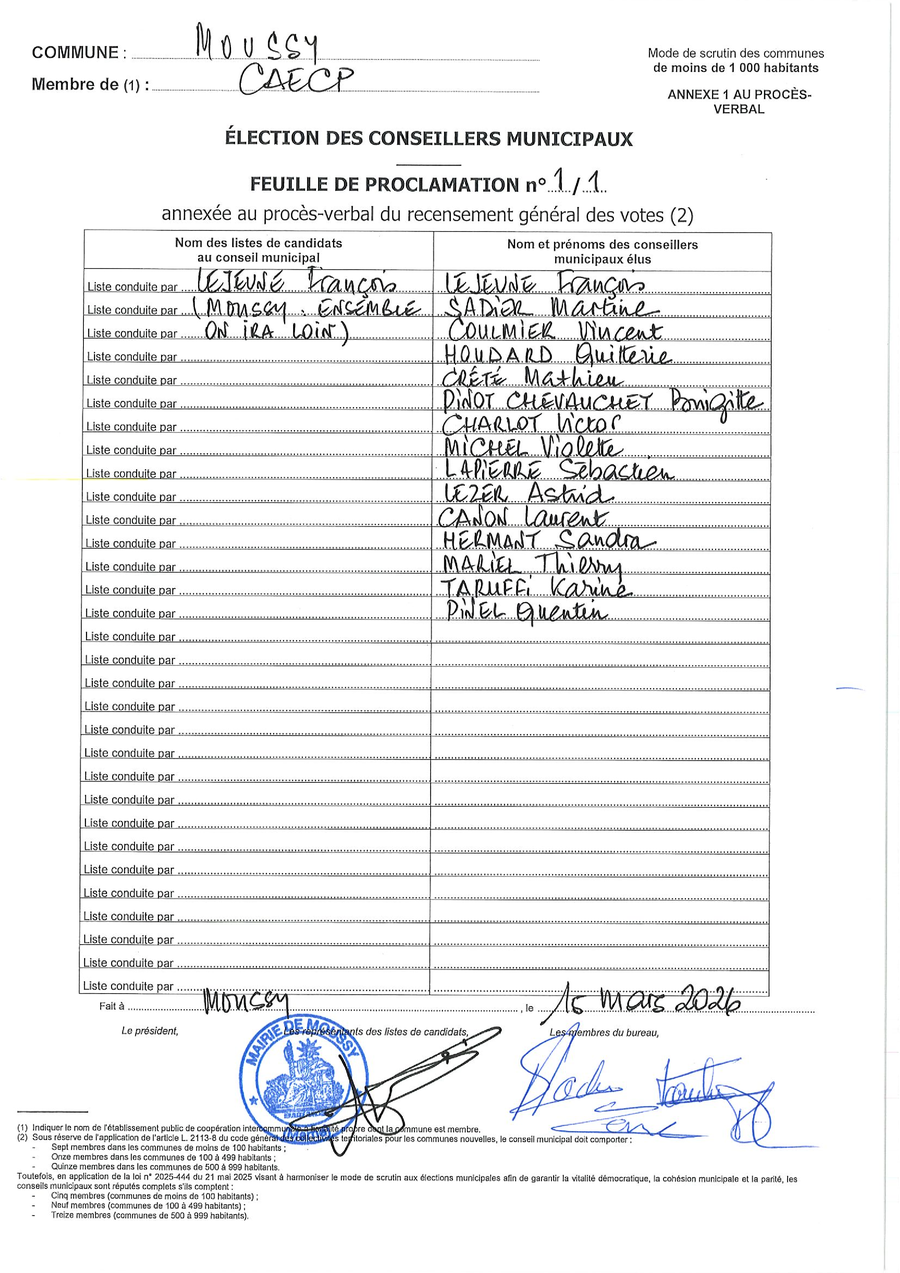 COMMUNE : MOUSSY
Mode de scrutin des communes
de moins de 1 000 habitants
Membre de (1) : CAECP
ANNEXE 1 AU PROCÈS-
VERBAL
ÉLECTION DES CONSEILLERS MUNICIPAUX
FEUILLE DE PROCLAMATION n° 1/1
annexée au procès-verbal du recensement général des votes (2)
Nom des listes de candidats
au conseil municipal
Nom et prénoms des conseillers
municipaux élus
Liste conduite par LEJEUNE François LEJEUNE François
Liste conduite par (MOUSSY : ENSEMBLE SADIER Martine
Liste conduite par ON IRA LOIN) COULMIER Vincent
Liste conduite par HOUDARD Quitterie
Liste conduite par CRÉTÉ Mathieu
Liste conduite par PINOT CHEVAUCHET Brigitte
Liste conduite par CHARLOT Victor
Liste conduite par MICHEL Violette
Liste conduite par LAPIERRE Sébastien
Liste conduite par LEZER Astrid
Liste conduite par CANON Laurent
Liste conduite par HERMANT Sandra
Liste conduite par MARIEL Thierry
Liste conduite par TARUFFI Karine
Liste conduite par PINEL Quentin
Liste conduite par
Liste conduite par
Liste conduite par
Liste conduite par
Liste conduite par
Liste conduite par
Liste conduite par
Liste conduite par
Liste conduite par
Liste conduite par
Liste conduite par
Liste conduite par
Liste conduite par
Liste conduite par
Liste conduite par
Liste conduite par
Fait à MOUSSY, le 15 mars 2026
Le président, Les représentants des listes de candidats, Les membres du bureau,
MAIRIE DE MOUSSY
(Marne)
(1) Indiquer le nom de l'établissement public de coopération intercommunale à fiscalité propre dont la commune est membre.
(2) Sous réserve de l'application de l'article L. 2113-8 du code général des collectivités territoriales pour les communes nouvelles, le conseil municipal doit comporter :
- Sept membres dans les communes de moins de 100 habitants ;
- Onze membres dans les communes de 100 à 499 habitants ;
- Quinze membres dans les communes de 500 à 999 habitants.
Toutefois, en application de la loi n° 2025-444 du 21 mai 2025 visant à harmoniser le mode de scrutin aux élections municipales afin de garantir la vitalité démocratique, la cohésion municipale et la parité, les
conseils municipaux sont réputés complets s'ils comptent :
- Cinq membres (communes de moins de 100 habitants) ;
- Neuf membres (communes de 100 à 499 habitants) ;
- Treize membres (communes de 500 à 999 habitants).